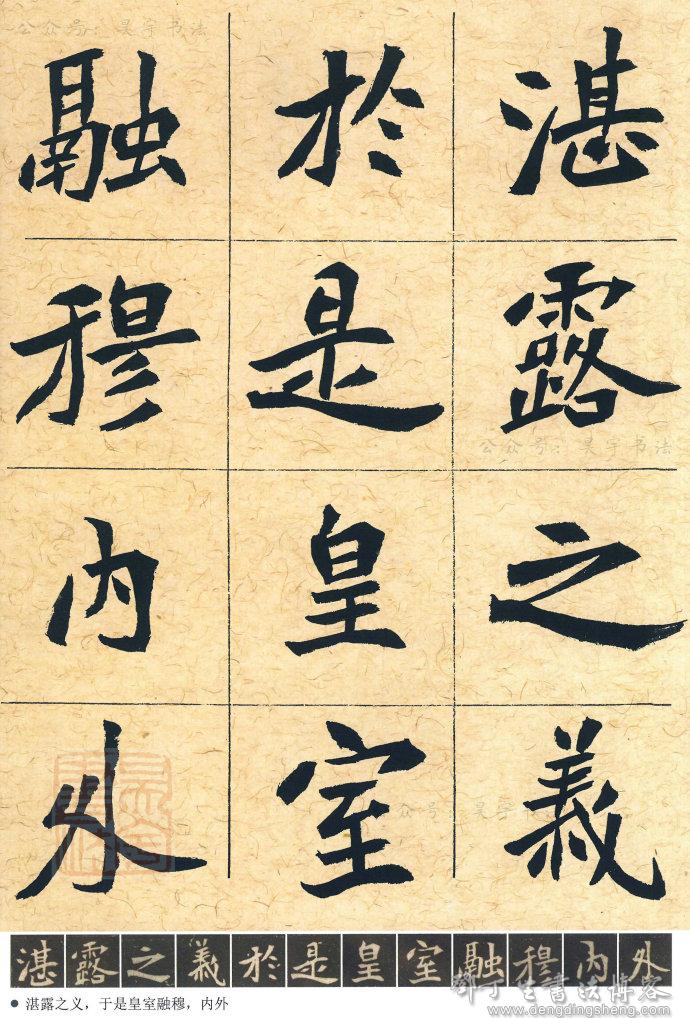 公众号：昊宇书法
湛露之義
於是皇室
融穆内外
公众号：昊宇书法
公众号：昊宇书法
湛露之義於是皇室融穆内外
● 湛露之义，于是皇室融穆，内外
邓丁生書法博客
www.dengdingsheng.com